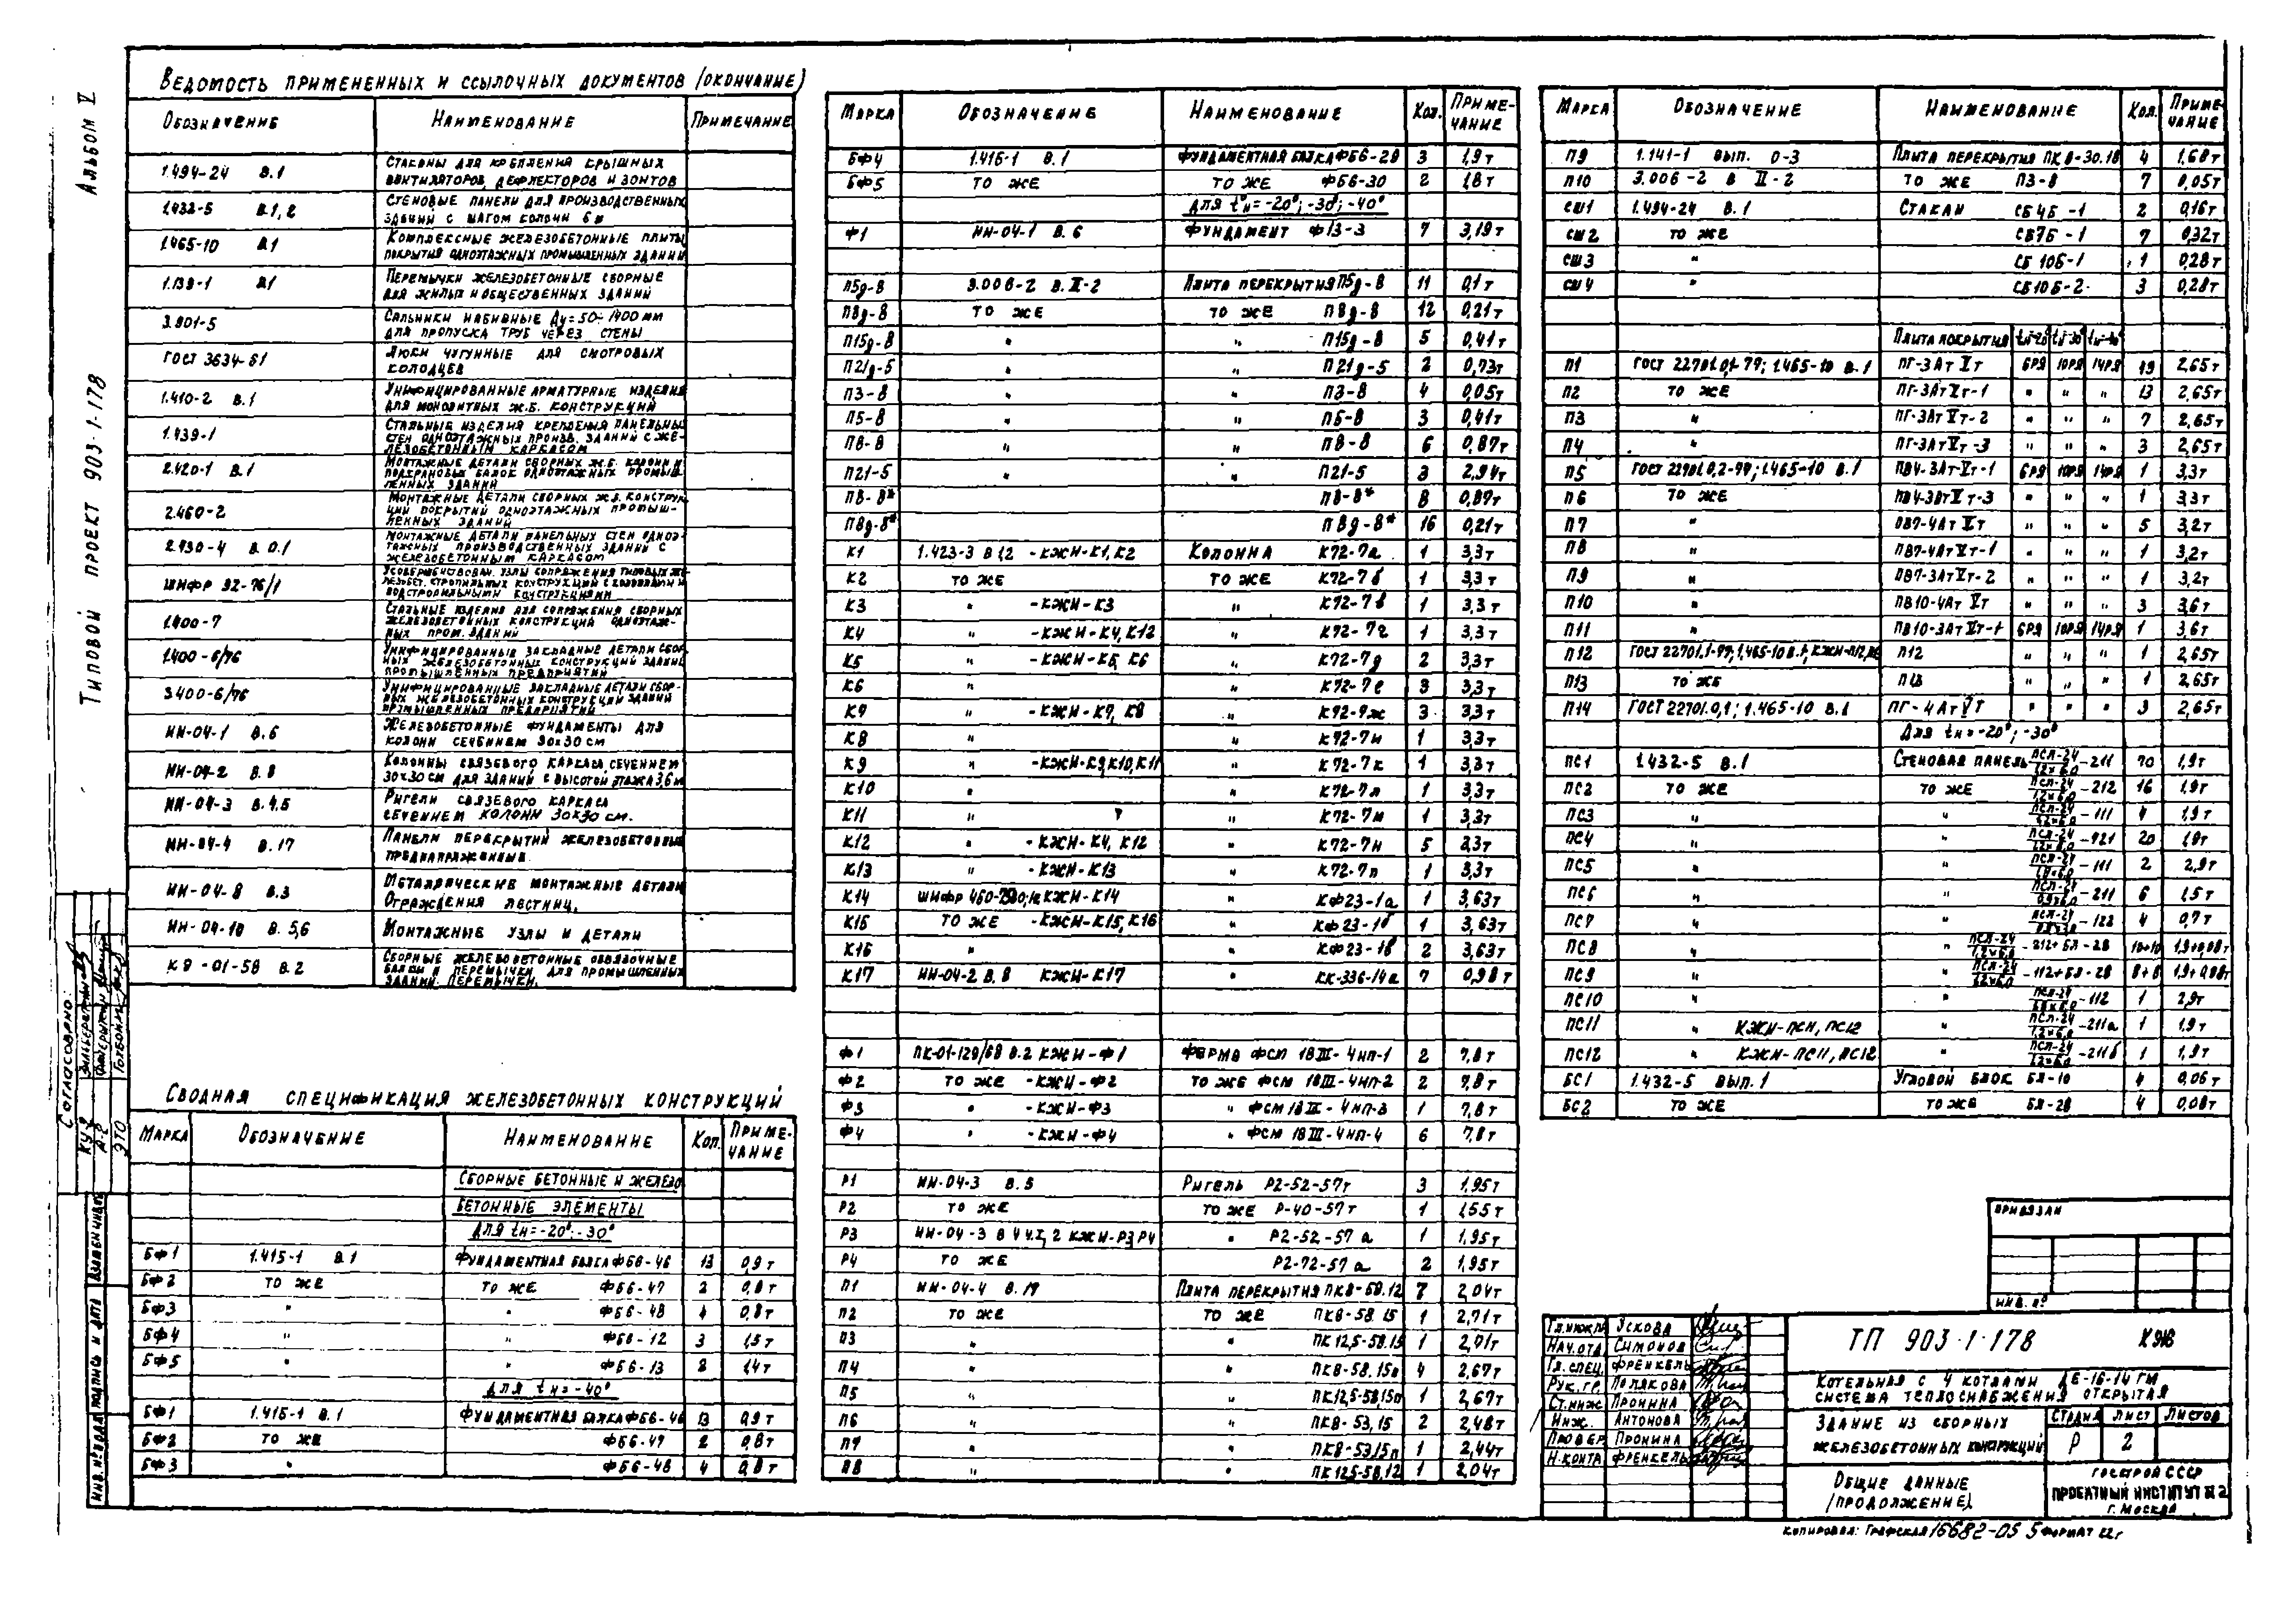 Альбом V
Типовой проект 903-1-178
Ведомость примененных и ссылочных документов (окончание)
Обозначение Наименование Примечание
1.494-24 в.1 Стаканы для крепления крышных
вентиляторов, дефлекторов и зонтов
1.432-5 в.1,2 Стеновые панели для производственных
зданий с шагом колонн 6м
1.465-10 в.1 Комплексные железобетонные плиты
покрытия одноэтажных промышленных зданий
1.139-1 в.1 Перемычки железобетонные сборные
для жилых и общественных зданий
3.901-5 Сальники набивные Ду=50÷1400мм
для пропуска труб через стены
ГОСТ 3634-61 Люки чугунные для смотровых
колодцев
1.410-2 в.1 Унифицированные арматурные изделия
для монолитных ж.б. конструкций
1.439-1 Стальные изделия крепления панельных
стен одноэтажных произв. зданий с же-
лезобетонным каркасом
2.420-1 в.1 Монтажные детали сборных ж.б. колонн и
подкрановых балок одноэтажных промыш-
ленных зданий
2.460-2 Монтажные детали сборных ж.б. конструк-
ций покрытий одноэтажных промыш-
ленных зданий
2.430-4 в.0.1 Монтажные детали панельных стен одноэ-
тажных производственных зданий с
железобетонным каркасом
Шифр 92-76/1 Усовершенствован. узлы сопряжения типовых же-
лезобет. стропильных конструкций с колоннами и
подстропильными конструкциями
1.400-7 Стальные изделия для сопряжения сборных
железобетонных конструкций одноэтаж-
ных пром. зданий
1.400-6/76 Унифицированные закладные детали сбор-
ных железобетонных конструкций зданий
промышленных предприятий
3.400-6/76 Унифицированные закладные детали сбор-
ных железобетонных конструкций зданий
промышленных предприятий
ИИ-04-1 в.6 Железобетонные фундаменты для
колонн сечением 30х30 см
ИИ-04-2 в.8 Колонны связевого каркаса, сечением
30х30 см для зданий с высотой этажа 3,6м
ИИ-04-3 в.4,5 Ригели связевого каркаса
сечением колонн 30х30 см.
ИИ-04-4 в.17 Панели перекрытий железобетонные
преднапряженные.
ИИ-04-8 в.3 Металлические монтажные детали
Ограждения лестниц.
ИИ-04-10 в.5,6 Монтажные узлы и детали
КЭ-01-58 в.2 Сборные железобетонные обвязочные
балки и перемычки для промышленных
зданий. Перемычки.
Сводная спецификация железобетонных конструкций
Марка Обозначение Наименование Кол. Примечание
Сборные бетонные и железо-
бетонные элементы
для tн=-20°; -30°
БФ1 1.415-1 в.1 Фундаментная балка ФБ6-46 13 0,9т
БФ2 то же то же ФБ6-47 2 0,8т
БФ3 " " ФБ6-48 4 0,8т
БФ4 " " ФБ6-12 3 1,5т
БФ5 " " ФБ6-13 2 1,4т
для tн=-40°
БФ1 1.415-1 в.1 Фундаментная балка ФБ6-46 13 0,9т
БФ2 то же ФБ6-47 2 0,8т
БФ3 " ФБ6-48 4 0,8т
Марка Обозначение Наименование Кол. Примечание
БФ4 1.415-1 в.1 Фундаментная балка ФБ6-29 3 1,9т
БФ5 то же то же ФБ6-30 2 1,8т
для tн=-20°; -30°; -40°
Ф1 ИИ-04-1 в.6 Фундамент Ф13-3 7 3,19т
П5д-8 3.006-2 в.II-2 Плита перекрытия П5д-8 11 0,1т
П8д-8 то же то же П8д-8 12 0,21т
П15д-8 " " П15д-8 5 0,41т
П21д-5 " " П21д-5 2 0,73т
П3-8 " " П3-8 4 0,05т
П5-8 " " П5-8 3 0,41т
П8-8 " " П8-8 6 0,87т
П21-5 " " П21-5 3 2,94т
П8-8* П8-8* 8 0,87т
П8д-8* П8д-8* 16 0,21т
К1 1.423-3 в 1,2 -КЖИ-К1,К2 Колонна К72-7а 1 3,3т
К2 то же то же К72-7б 1 3,3т
К3 " -КЖИ-К3 " К72-7в 1 3,3т
К4 " -КЖИ-К4,К12 " К72-7г 1 3,3т
К5 " -КЖИ-К5,К6 " К72-7д 2 3,3т
К6 " К72-7е 3 3,3т
К7 " -КЖИ-К7,К8 " К72-7ж 3 3,3т
К8 " " К72-7и 1 3,3т
К9 " -КЖИ-К9,К10,К11 " К72-7к 1 3,3т
К10 " " К72-7л 1 3,3т
К11 " " К72-7м 1 3,3т
К12 " -КЖИ-К4,К12 " К72-7н 5 3,3т
К13 " -КЖИ-К13 " К72-7п 1 3,3т
К14 Шифр КЖИ-К14 " КФ23-1а 1 3,63т
К15 то же -КЖИ-К15,К16 " КФ23-1б 1 3,63т
К16 " " КФ23-1в 2 3,63т
К17 ИИ-04-2 в.8 КЖИ-К17 " КК-336-14а 7 0,98т
Ф1 ПК-01-129/68 в.2 КЖИ-Ф1 Ферма ФСМ 18III-4нп-1 2 7,8т
Ф2 то же -КЖИ-Ф2 то же ФСМ 18III-4нп-2 2 7,8т
Ф3 " -КЖИ-Ф3 " ФСМ 18III-4нп-3 1 7,8т
Ф4 " -КЖИ-Ф4 " ФСМ 18III-4нп-4 6 7,8т
Р1 ИИ-04-3 в.5 Ригель Р2-52-57т 3 1,95т
Р2 то же то же Р-40-57т 1 1,55т
Р3 ИИ-04-3 в 4 ч.I,2 КЖИ-Р3,Р4 " Р2-52-57а 1 1,95т
Р4 то же Р2-72-57а 2 1,95т
П1 ИИ-04-4 в.17 Плита перекрытия ПК8-58.12 7 2,04т
П2 то же то же ПК8-58.15 1 2,71т
П3 " " ПК12,5-58.15 1 2,71т
П4 " " ПК8-58.15п 4 2,67т
П5 " " ПК12,5-58.15п 1 2,67т
П6 " " ПК8-53.15 2 2,48т
П7 " " ПК8-53.15п 1 2,44т
П8 " " ПК12,5-58.12 1 2,04т
Марка Обозначение Наименование Кол. Примечание
П9 1.141-1 вып. 0-3 Плита перекрытия ПК8-30.18 4 1,68т
П10 3.006-2 в II-2 то же П3-8 7 0,05т
СШ1 1.494-24 в.1 Стакан СБ4Б-1 2 0,16т
СШ2 то же СБ7Б-1 7 0,32т
СШ3 " СБ10Б-1 1 0,28т
СШ4 " СБ10Б-2 3 0,28т
Плита покрытия tн-20° tн-30° tн-40°
П1 ГОСТ 22701.0,1-77; 1.465-10 в.1 ПГ-3АтVт 6РЯ 10РЯ 14РЯ 49 2,65т
П2 то же ПГ-3АтVт-1 " " " 13 2,65т
П3 " ПГ-3АтVт-2 " " " 7 2,65т
П4 " ПГ-3АтVт-3 " " " 3 2,65т
П5 ГОСТ 22701.0,2-77; 1.465-10 в.1 ПВ4-3АтVт-1 6РЯ 10РЯ 14РЯ 1 3,3т
П6 то же ПВ4-3АтVт-3 " " " 1 3,3т
П7 " ПВ7-4АтVт " " " 5 3,2т
П8 " ПВ7-4АтVт-1 " " " 1 3,2т
П9 " ПВ7-3АтVт-2 " " " 1 3,2т
П10 " ПВ10-4АтVт " " " 3 3,6т
П11 " ПВ10-3АтVт-1 6РЯ 10РЯ 14РЯ 1 3,6т
П12 ГОСТ 22701.1-77; 1.465-10 в.1, П12 " " " 1 2,65т
П13 то же П13 " " " 1 2,65т
П14 ГОСТ 22701.0,1; 1.465-10 в.1 ПГ-4АтVт " " " 3 2,65т
Для tн=-20°; -30°
ПС1 1.432-5 в.1 Стеновая панель ПСЛ-24/1,2х6,0-211 70 1,9т
ПС2 то же то же ПСЛ-24/1,2х6,0-212 16 1,9т
ПС3 " " ПСЛ-24/1,2х6,0-111 4 1,9т
ПС4 " " ПСЛ-24/1,2х6,0-421 20 1,9т
ПС5 " " ПСЛ-24/1,8х6,0-111 2 2,9т
ПС6 " " ПСЛ-24/0,9х6,0-211 6 1,5т
ПС7 " " ПСЛ-24 -122 4 0,7т
ПС8 " " ПСЛ-24/1,2х6,0-212+БЛ-28 10+10 1,9+0,08т
ПС9 " " ПСЛ-24/1,2х6,0-112+БЛ-28 8+8 1,9+0,08т
ПС10 " " ПСЛ-24/1,8х6,0-112 1 2,9т
ПС11 " КЖИ-ПС11,ПС12 " ПСЛ-24/1,2х6,0-211а 1 1,9т
ПС12 " КЖИ-ПС11,ПС12 " ПСЛ-24/1,2х6,0-211б 1 1,9т
БС1 1.432-5 вып.1 Угловой блок БЛ-10 4 0,06т
БС2 то же то же БЛ-28 4 0,08т
Привязан
Инв. №
Гл.инж.пр. Ускова
Нач.отд. Симонов
Гл.спец. Френкель
Рук.гр. Полякова
Ст.инж. Пронина
Инж. Антонова
Провер. Пронина
Н.контр. Френкель
ТП 903-1-178 КЖ
Котельная с 4 котлами ДЕ-16-14 ГМ
система теплоснабжения открытая
Здание из сборных
железобетонных конструкций
Стадия Лист Листов
Р 2
Общие данные
(продолжение)
Госстрой СССР
Проектный институт №2
г. Москва
Копировал: Графская 16682-05 5 Формат 22г
Согласовано:
ЭТО
Инв. № подл. Подпись и дата Взамен инв.№